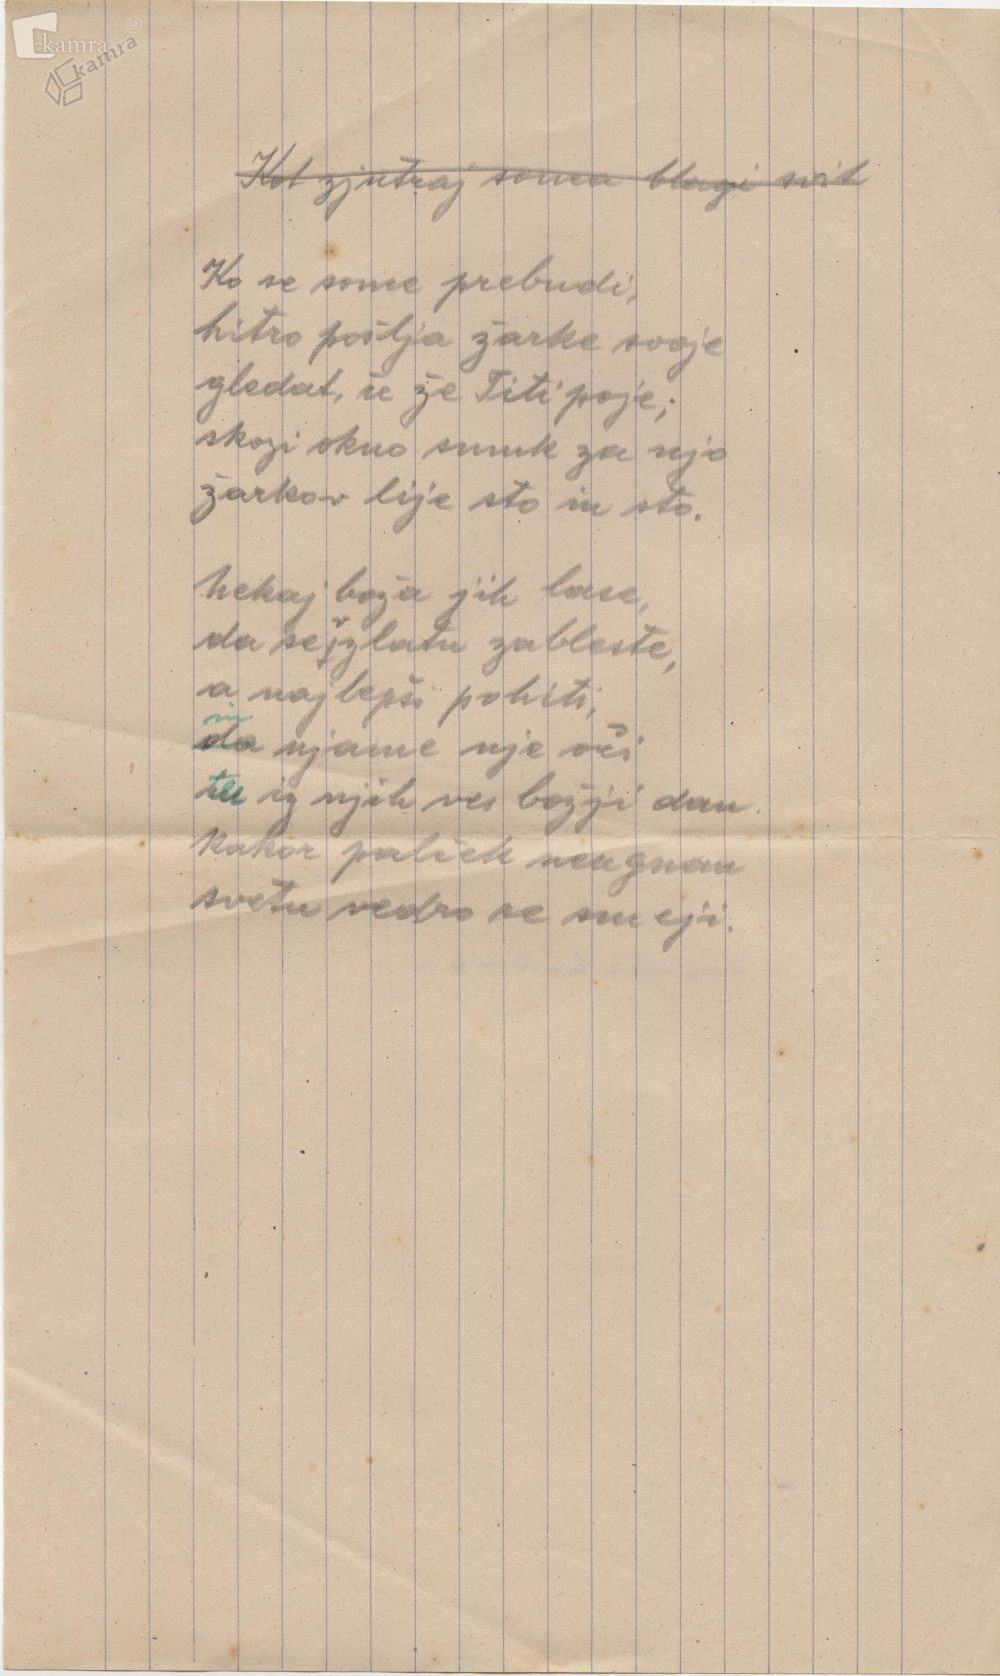 kamra
kamra
Kot zjutraj sonca blagi svit
Ko se sonce prebudi,
hitro pošlja žarke svoje
gledat, če že Titi poje;
skozi okno smuk za njo
žarkov lije sto in sto.
Nekaj boža jih lase,
da se v zlatu zableste,
a najlepši pohiti,
in
da njame nje oči
ter iz njih ves božji dan
kakor palček neugnan
svetu vedro se smeji.